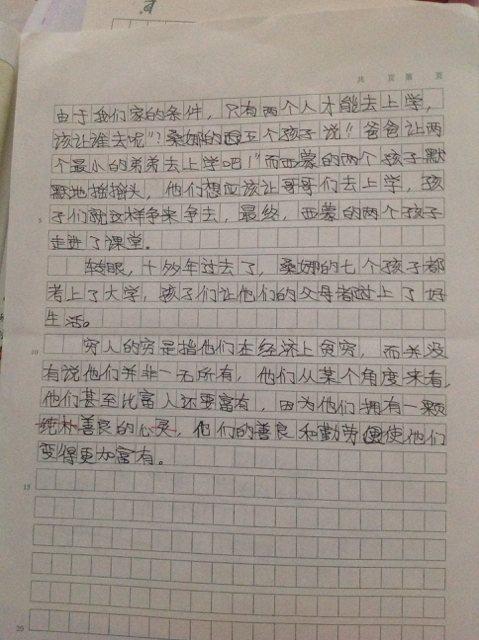 共 页 第 页
由于我们家的条件，只有两个人才能去上学，
该让谁去呢"？桑娜的五个孩子说"爸爸让两
个最小的弟弟去上学吧！"而西蒙的两个孩子默
默地摇摇头，他们想应该让哥哥们去上学，孩
子们就这样争来争去，最终，西蒙的两个孩子
5
走进了课堂。
转眼，十多年过去了，桑娜的七个孩子都
考上了大学，孩子们让他们的父母都过上了好
生活。
10
穷人的穷是指他们在经济上贫穷，而并没
有说他们并非一无所有，他们从某个角度来看，
他们甚至比富人还要富有，因为他们拥有一颗
纯朴善良的心灵，他们的善良和勤劳使他们
变得更加富有。
15
20